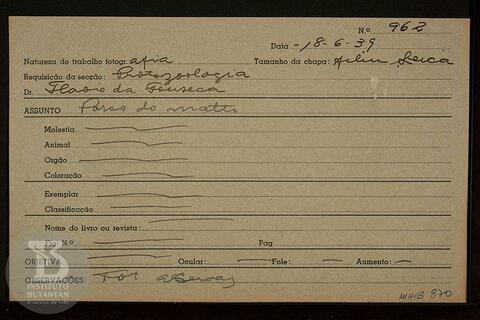 Nº 962
Data - 18-6-39
Natureza do trabalho fotogr. afia Tamanho da chapa: film Leica
Requisição da secção: Protozoologia
Dr. Flavio da Fonseca
ASSUNTO Porco do matto
Molestia
Animal
Orgão
Coloração
Exemplar
Classificação
Nome do livro ou revista:
Fig. N.º Pag.
OBJETIVA Ocular: Fole: Aumento:
OBSERVAÇÕES:
INSTITUTO
BUTANTAN
A serviço da vida
MHIB 970